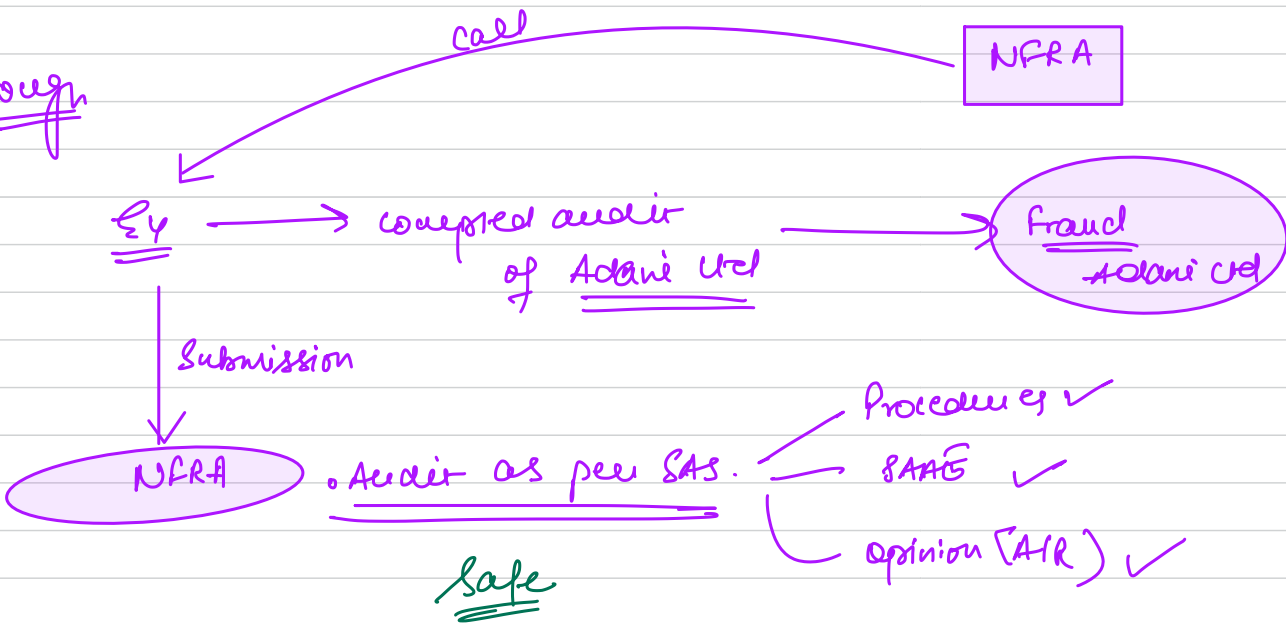 call
NFRA
ough
EY
compled audit
of Adani Ltd
fraud
Adani Ltd
Submission
NFRA
. Audit as per SAS.
Procedures ✓
SAAE ✓
opinion [A/R) ✓
Safe